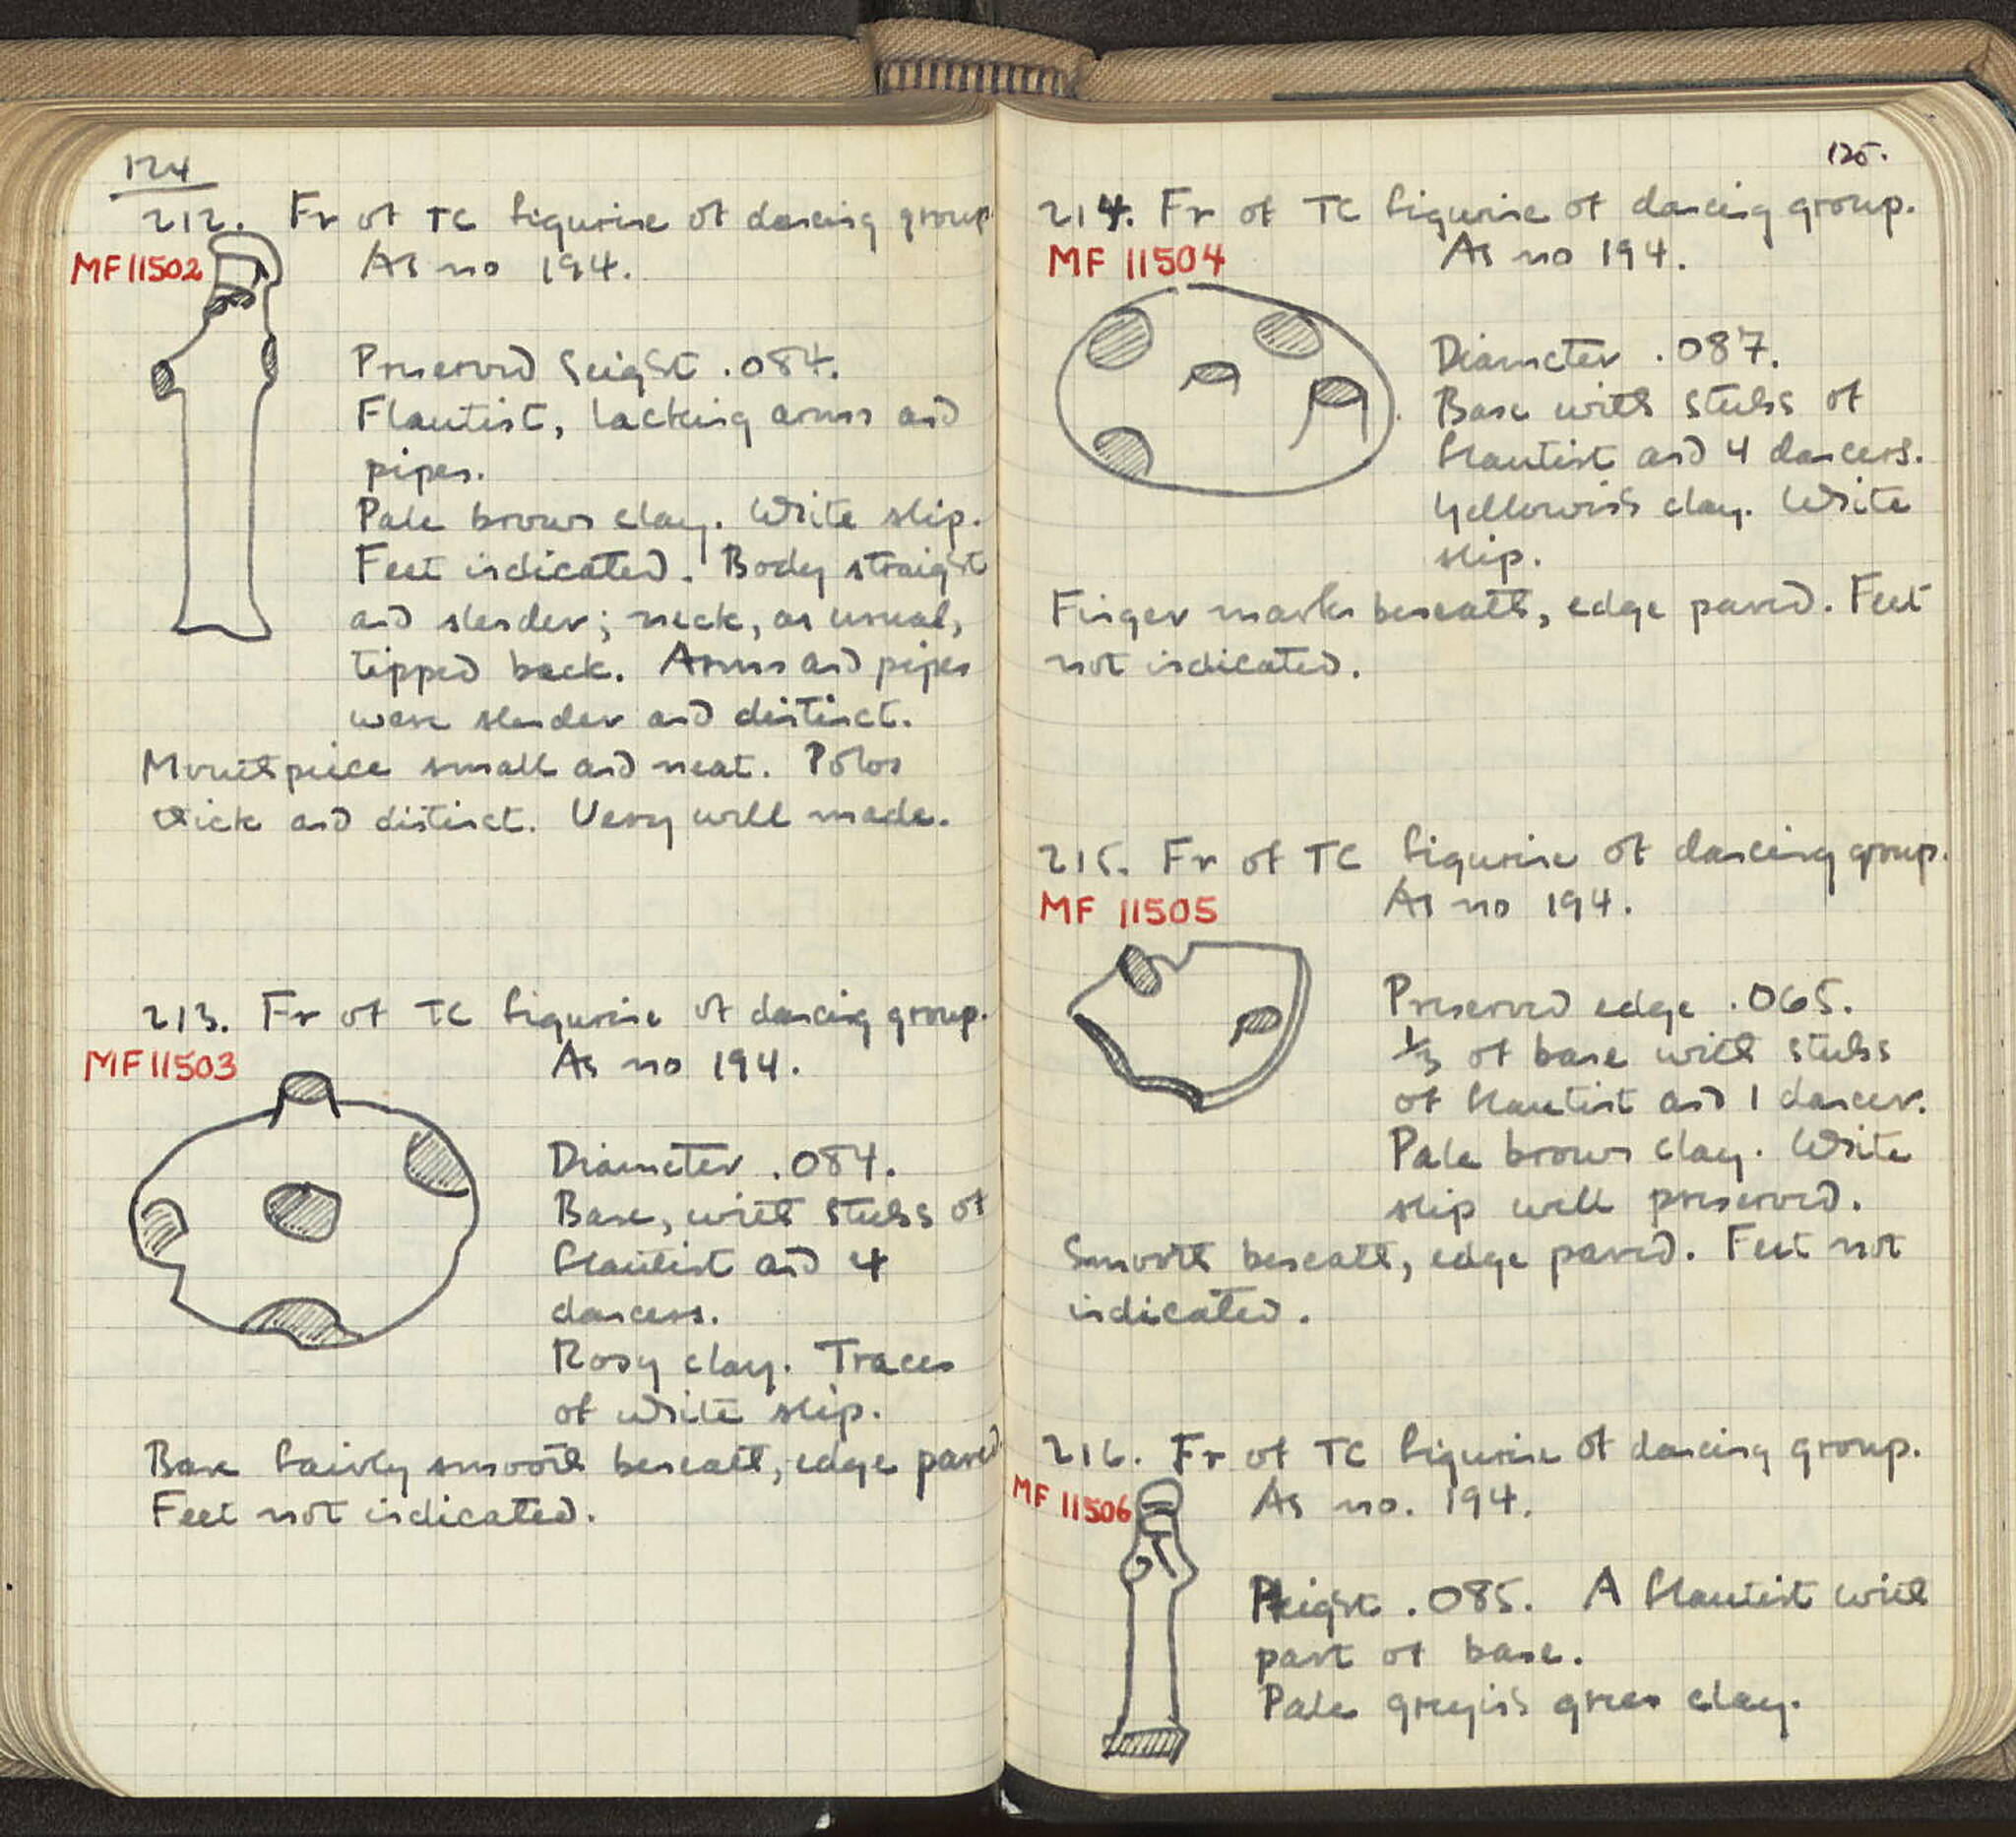 124
212. Fr of TC figurine of dancing group
MF11502
As no 194.
Preserved height .084.
Flautist, lacking arms and
pipes.
Pale brown clay. White slip.
Feet indicated. Body straight
and slender; neck, as usual,
tipped back. Arms and pipes
were slender and distinct.
Mouthpiece small and neat. Polos
thick and distinct. Very well made.
213. Fr of TC figurine of dancing group.
MF11503
As no 194.
Diameter .084.
Base, with stubs of
flautist and 4
dancers.
Rosy clay. Traces
of white slip.
Base fairly smooth beneath, edge pared
Feet not indicated.
125.
214. Fr of TC figurine of dancing group.
MF 11504
As no 194.
Diameter .087.
Base with stubs of
flautist and 4 dancers.
Yellowish clay. White
slip.
Finger marks beneath, edge pared. Feet
not indicated.
215. Fr of TC figurine of dancing group.
MF 11505
As no 194.
Preserved edge .065.
1/3 of base with stubs
of flautist and 1 dancer.
Pale brown clay. White
slip well preserved.
Smooth beneath, edge pared. Feet not
indicated.
216. Fr of TC figurine of dancing group.
MF 11506
As no. 194.
Height .085. A flautist with
part of base.
Pale greyish green clay.